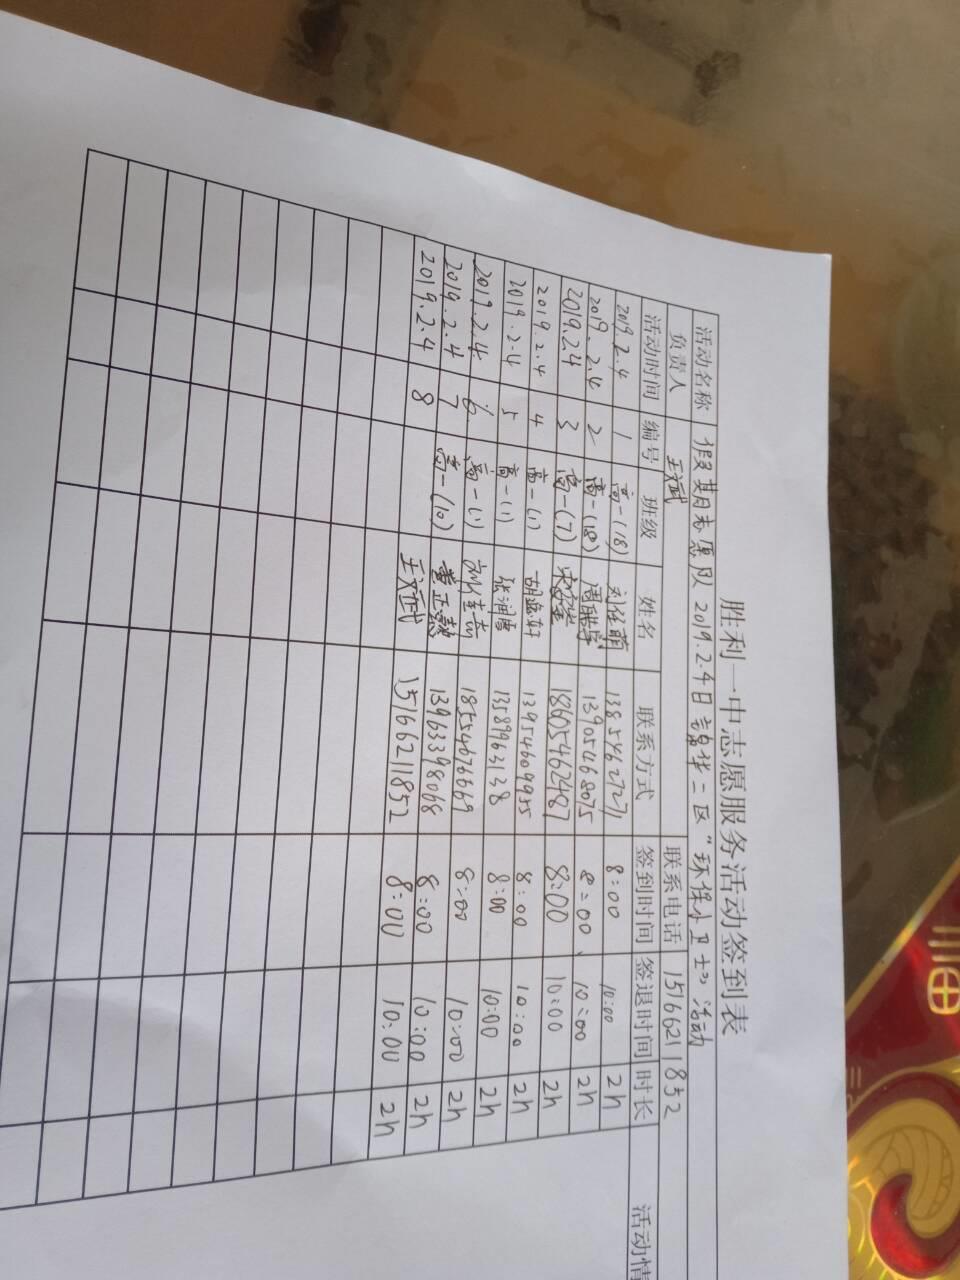 胜利一中志愿服务活动签到表
活动名称 假期志愿队 2019.2.4日 锦华二区"环保小卫士"活动
负责人 王斌 联系电话 15166211852
活动时间 编号 班级 姓名 联系方式 签到时间 签退时间 时长 活动情
2019.2.4 1 高一(18) 刘佳萌 13854627271 8:00 10:00 2h
2019.2.4 2 高一(18) 周 13905468075 8:00 10:00 2h
2019.2.4 3 高一(7) 18605462487 8:00 10:00 2h
2019.2.4 4 高一(1) 胡 轩 13954609955 8:00 10:00 2h
2019.2.4 5 高一(1) 张 13589963138 8:00 10:00 2h
2019.2.4 6 高一(1) 佳 18554676669 8:00 10:00 2h
2019.2.4 7 高一(10) 董正 13963398068 8:00 10:00 2h
2019.2.4 8 王 斌 15166211852 8:00 10:00 2h